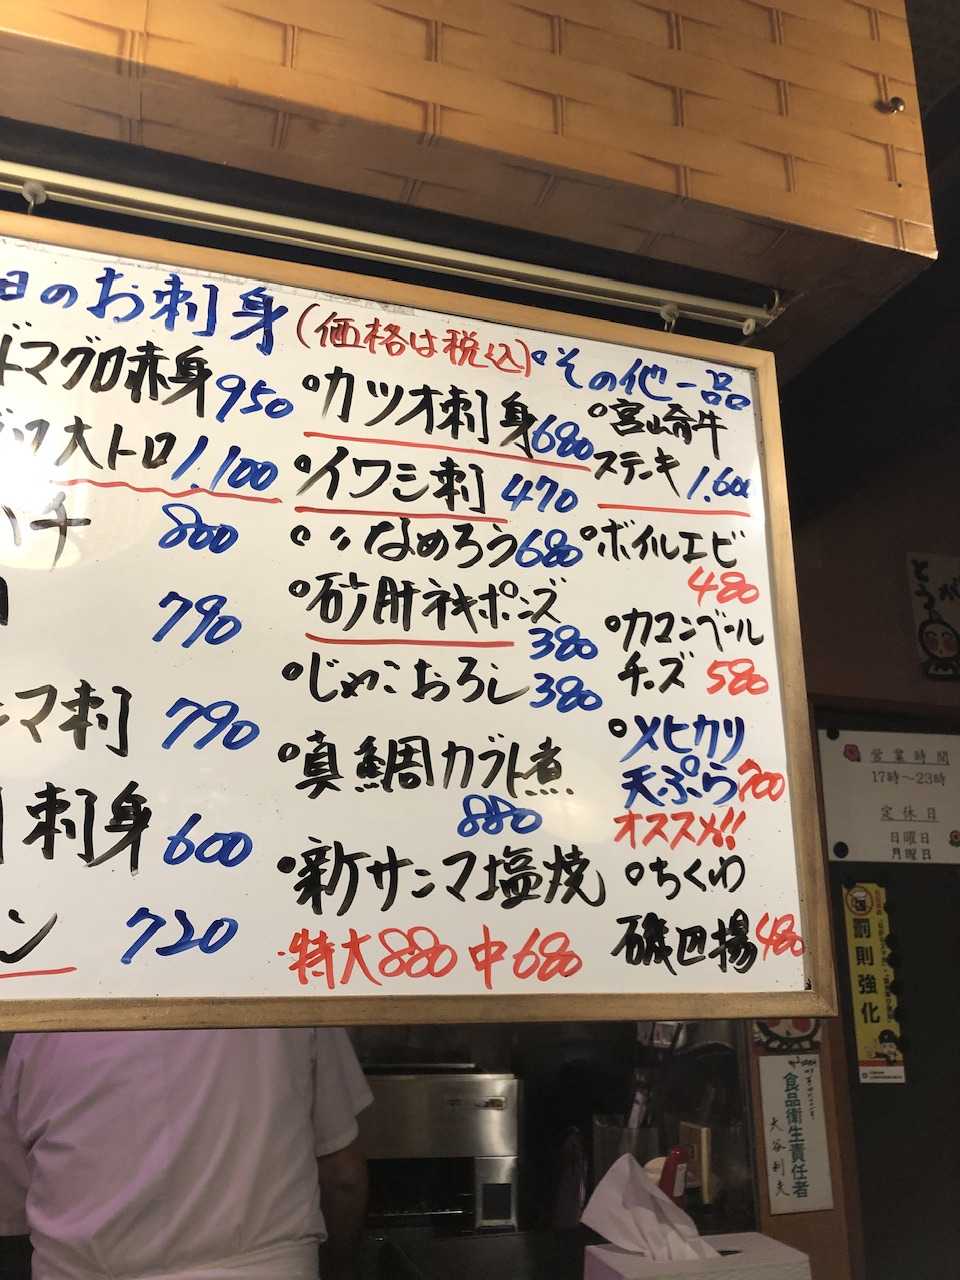 日のお刺身(価格は税込)
マグロ赤身 950
大トロ 1.100
ハチ 800
790
マ刺 790
刺身 600
ン 720
°カツオ刺身 680
°イワシ刺 470
°〃なめろう 680
°砂肝ネギポンズ 380
°じゃこおろし 380
°真鯛カブト煮
880
°新サンマ塩焼
特大 880 中 680
°その他一品
°宮崎牛
ステーキ 1.600
°ボイルエビ
480
°カマンベール
チーズ 580
°メヒカリ
天ぷら 700
オススメ!!
°ちくわ
磯辺揚 480
営業時間
17時〜23時
定休日
日曜日
月曜日
罰則強化
食品衛生責任者
大谷利夫